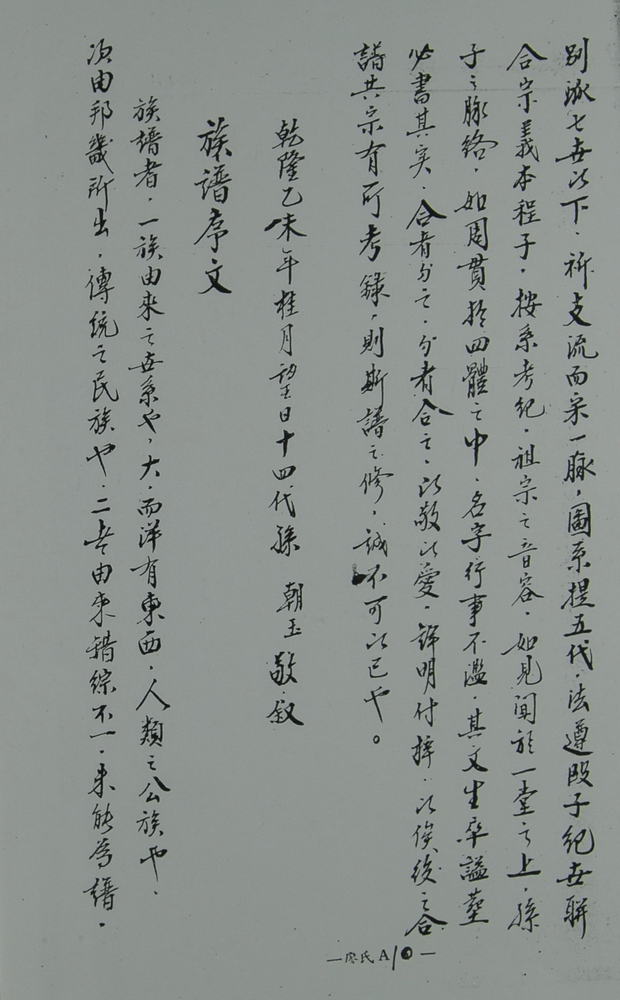 別派七世以下，祈支流而宗一脉，圖系提五代，法遵殴子紀世聯
合宗義本程子，按系考紀，祖宗之音容，如見聞於一堂之上，孫
子之脉络，如周貫於四體之中，名字行事不濫，其文生卒謚塟
必書其实，合者分之，分者合之，以敬以愛，錦明付梓，以俟後之合
譜共宗有所考錄，則斯譜之修，誠不可以已也。
乾隆乙未年桂月望日十四代孫 朝玉敬叙
族譜序文
族譜者，一族由來之世系也，大，而洋有東西，人類之公族也，
次由邦畿所出，傳統之民族也，二者由來錯綜不一，未能為譜，
—廖氏A10—